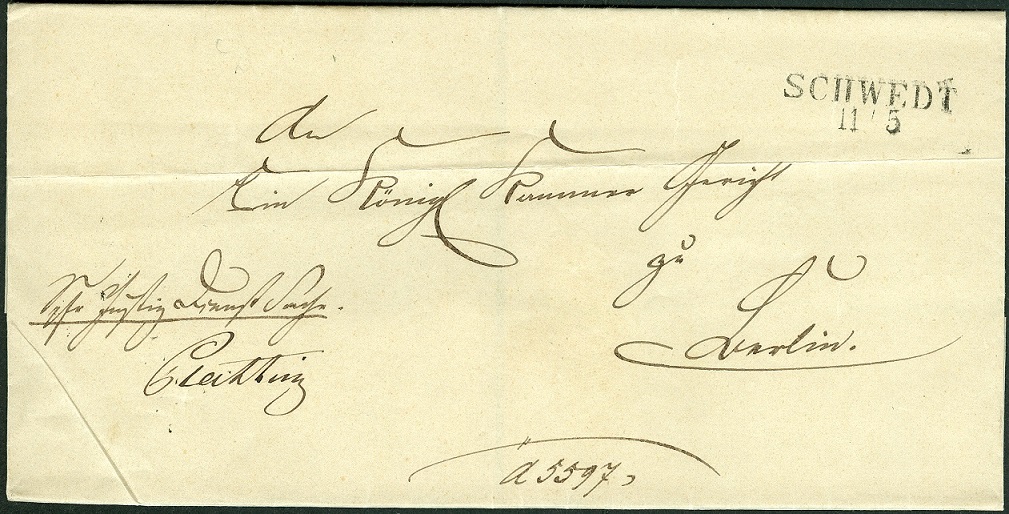 SCHWEDT
11 / 5
An
Ein Königl Kammer Gericht
zu
Berlin.
Justiz Dienst Sache.
a 5597,